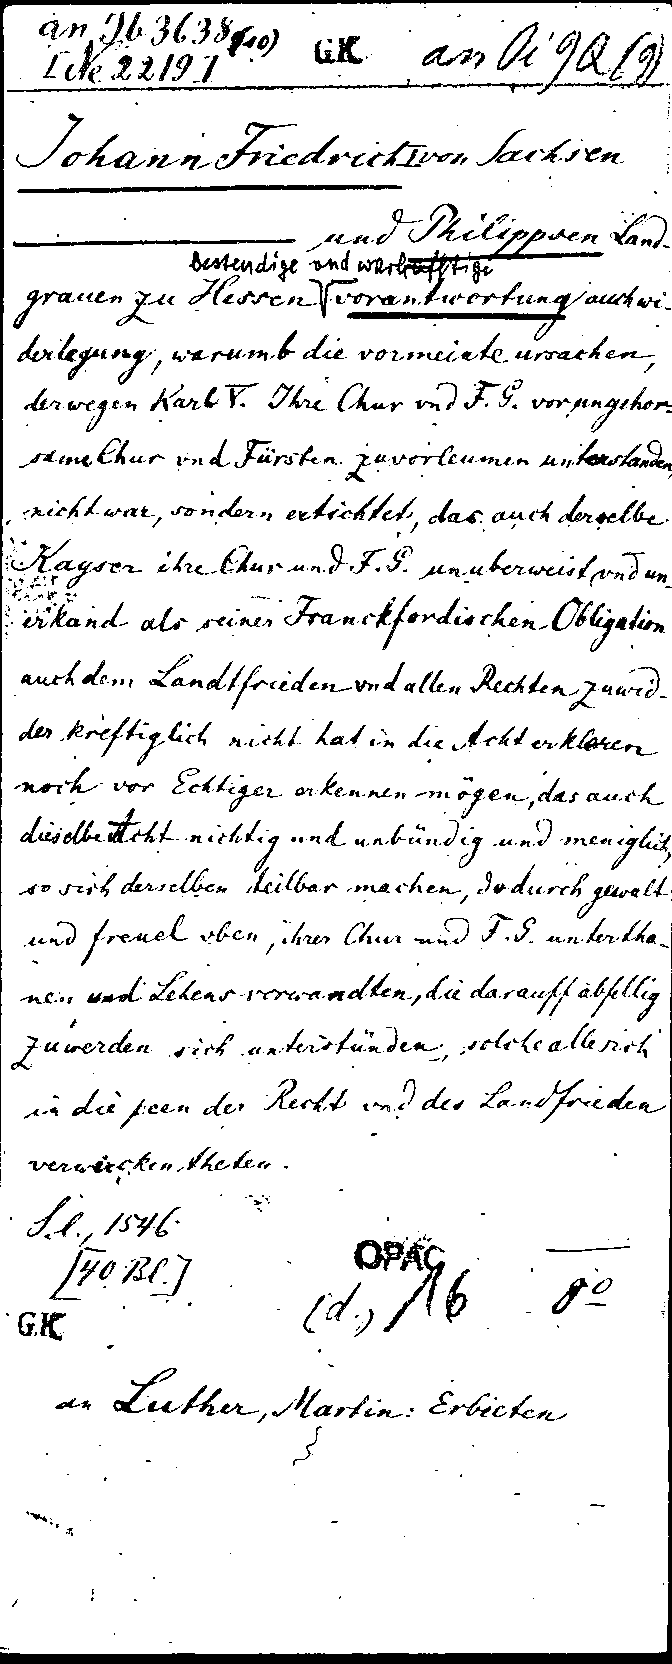 an Jb 3638 (10) GK an Oi 9Q (9)
I Ne 22191
Johann Friedrich I von Sachsen
und Philippsen Land-
bestendige und warhafftige
grauen zu Hessen vorantwortung auch wi-
derlegung, warumb die vormeinte ursachen,
derwegen Karl V. Ihre Chur vnd F. G. vor ungehor-
same Chur vnd Fürsten zuvorleumen unterstanden,
nicht war, sondern ertichtet, das auch derselbe
Kayser ihre Chur und F. G. unuberweist vnd un-
erkand als seiner Franckfordischen Obligation
auch dem Landtfrieden vnd allen Rechten zuwid-
der kreftiglich nicht hat in die Acht erkleren
noch vor Echtiger erkennen mögen, das auch
dieselbe Acht nichtig und unbündig und meniglich,
so sich derselben teilbar machen, dodurch gewalt
und freuel vben, ihrer Chur und F. G. untertha-
nen und Lehens verwandten, die darauff abfellig
zuwerden sich unterstünden, solche alle sich
in die peen der Recht vnd des Landfrieden
verwircken theten.
S. l., 1546
[40 Bl.] OPAC
(d.) 16 8o
GK
an Luther, Martin: Erbieten